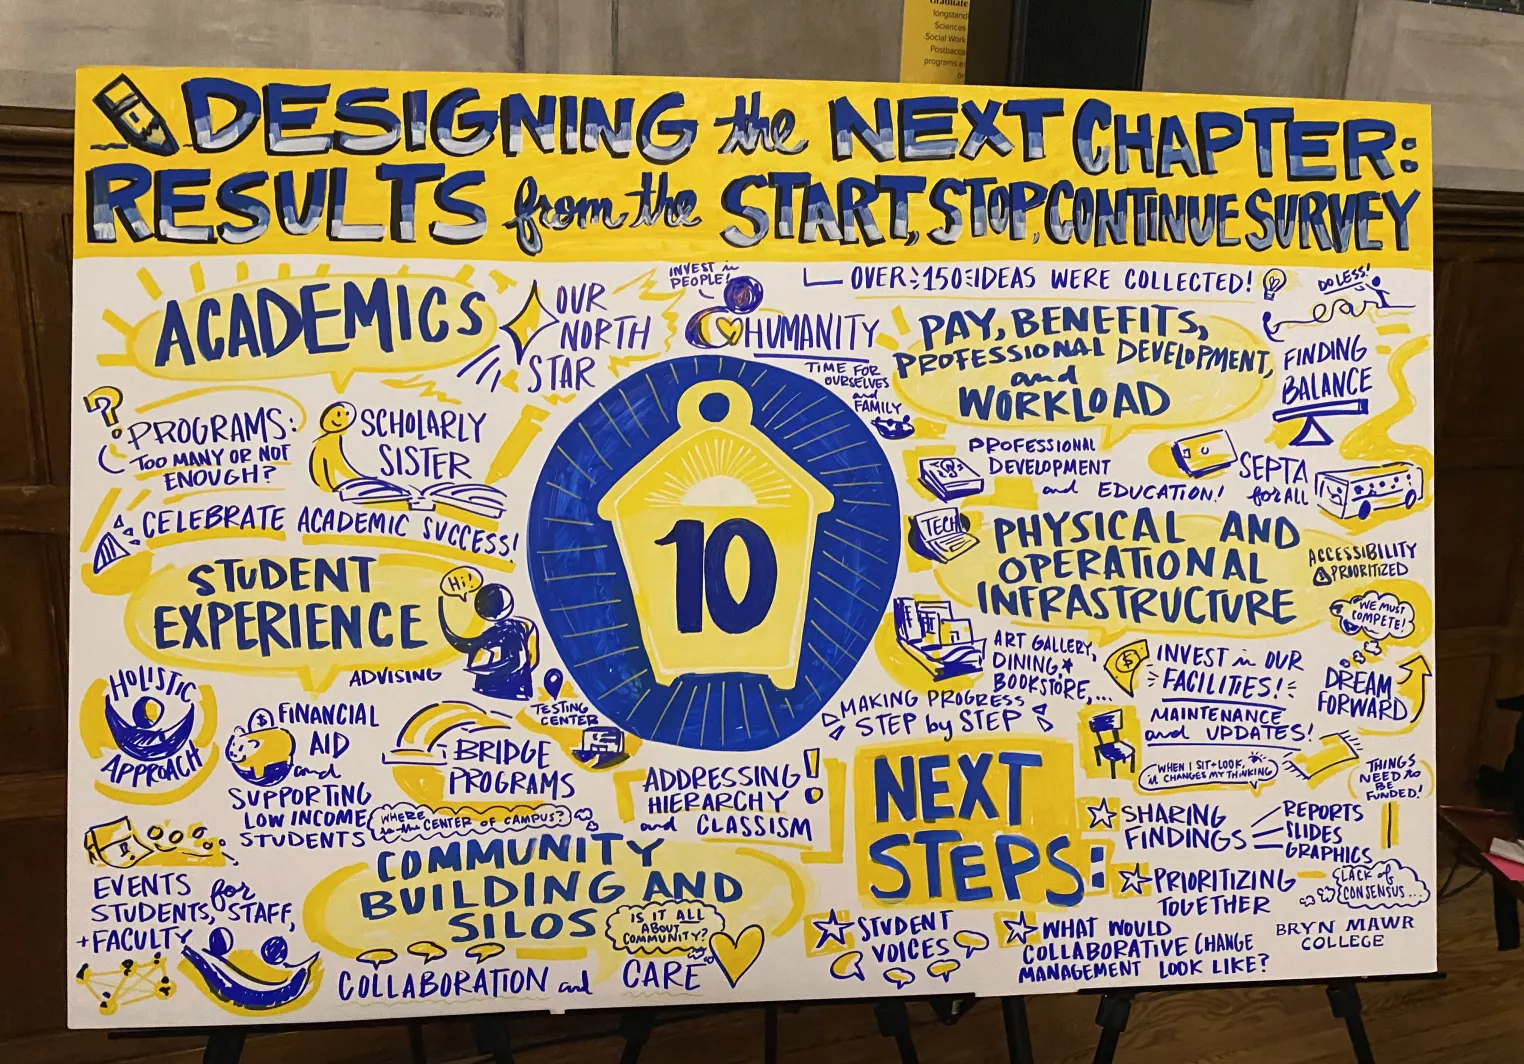 Graduate
longstand
Sciences
Social Work
Postbacca
programs e
DESIGNING the NEXT CHAPTER:
RESULTS from the START, STOP, CONTINUE SURVEY
ACADEMICS
OUR
NORTH
STAR
INVEST in
PEOPLE!
HUMANITY
TIME FOR
OURSELVES
and
FAMILY
OVER 150 IDEAS WERE COLLECTED!
DO LESS!
PAY, BENEFITS,
PROFESSIONAL DEVELOPMENT,
and
WORKLOAD
FINDING
BALANCE
?
PROGRAMS:
TOO MANY OR NOT
ENOUGH?
SCHOLARLY
SISTER
CELEBRATE ACADEMIC SUCCESS!
PROFESSIONAL
DEVELOPMENT
and EDUCATION!
SEPTA
for ALL
10
STUDENT
EXPERIENCE
Hi!
ADVISING
TECH
PHYSICAL AND
OPERATIONAL
INFRASTRUCTURE
ACCESSIBILITY
PRIORITIZED
WE MUST
COMPETE!
DREAM
FORWARD
ART GALLERY,
DINING,
BOOKSTORE,...
$
INVEST in OUR
FACILITIES!
MAINTENANCE
and UPDATES!
MAKING PROGRESS
STEP by STEP
WHEN I SIT + LOOK,
it CHANGES MY THINKING
THINGS
NEED to
BE
FUNDED!
HOLISTIC
APPROACH
$
FINANCIAL
AID
and
SUPPORTING
LOW INCOME
STUDENTS
BRIDGE
PROGRAMS
TESTING
CENTER
WHERE
is the CENTER OF CAMPUS?
ADDRESSING
HIERARCHY
and CLASSISM
!
EVENTS for
STUDENTS, STAFF,
+ FACULTY
COMMUNITY
BUILDING AND
SILOS
IS IT ALL
ABOUT
COMMUNITY?
COLLABORATION and CARE
NEXT
STEPS:
SHARING
FINDINGS
REPORTS
SLIDES
GRAPHICS
PRIORITIZING
TOGETHER
LACK of
CONSENSUS...
STUDENT
VOICES
WHAT WOULD
COLLABORATIVE CHANGE
MANAGEMENT LOOK LIKE?
BRYN MAWR
COLLEGE